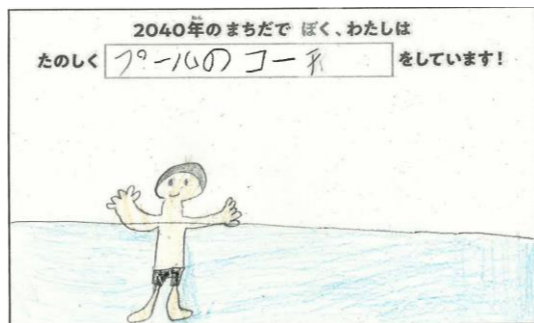 2040年のまちだで ぼく、わたしは
たのしく プールのコーチ をしています!